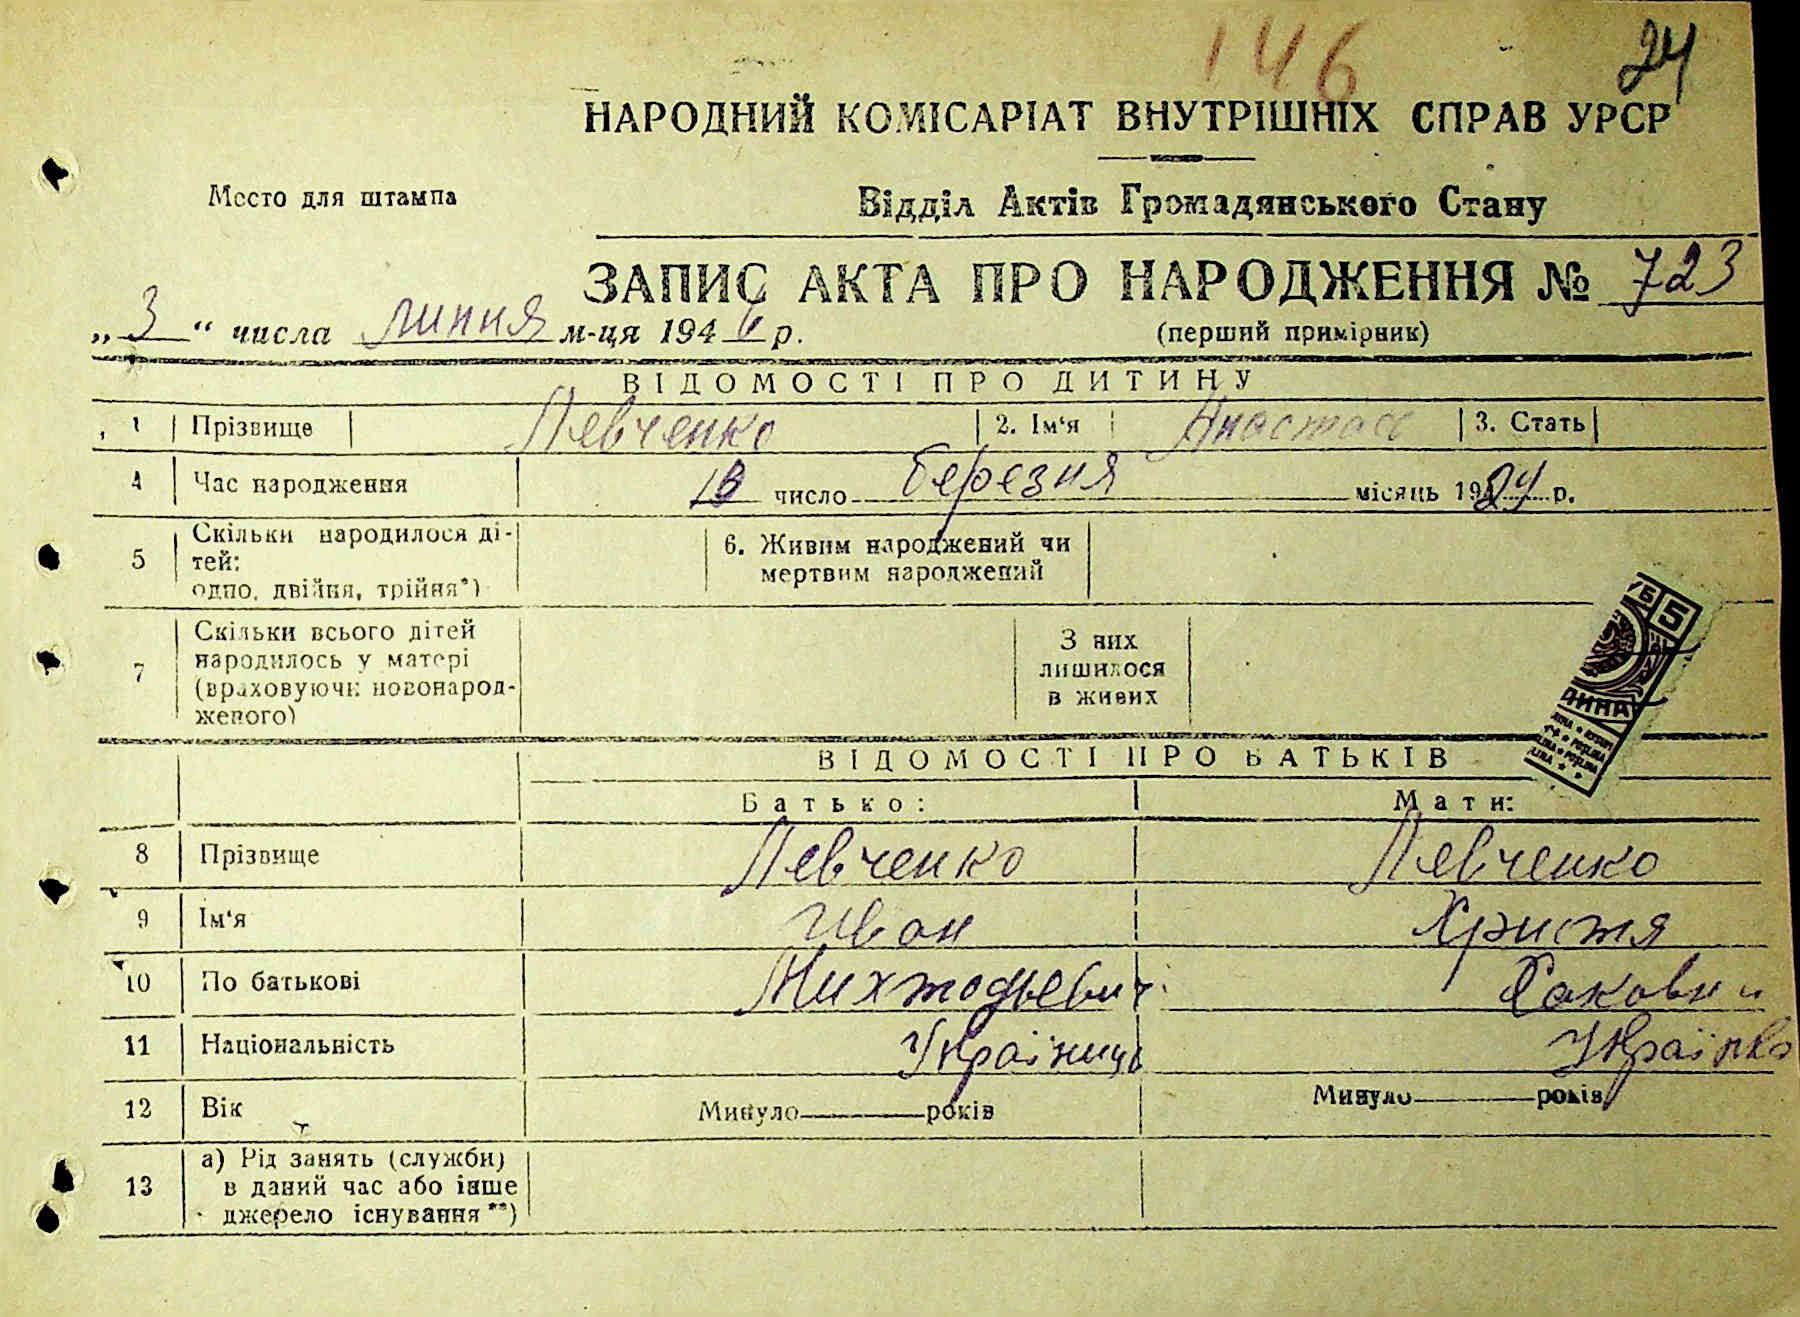 146 24
НАРОДНИЙ КОМІСАРІАТ ВНУТРІШНІХ СПРАВ УРСР
Место для штампа
Відділ Актів Громадянського Стану
ЗАПИС АКТА ПРО НАРОДЖЕННЯ № 723
„3“ числа липня м-ця 1946 р.
(перший примірник)
ВІДОМОСТІ ПРО ДИТИНУ
1 Прізвище Левченко 2. Ім‘я 3. Стать
4 Час народження 13 число березня місяць 1924 р.
5 Скільки народилося ді-
тей:
одно, двійня, трійня*)
6. Живим народжений чи
мертвим народжений
7 Скільки всього дітей
народилось у матері
(враховуючи новонарод-
женого)
З них
лишилося
в живих
5
ВІДОМОСТІ ПРО БАТЬКІВ
Батько: Мати:
8 Прізвище Левченко Левченко
9 Ім‘я Иван Христя
10 По батькові
11 Національність Українець Українка
12 Вік Минуло років Минуло років
13 а) Рід занять (служби)
в даний час або інше
джерело існування**)